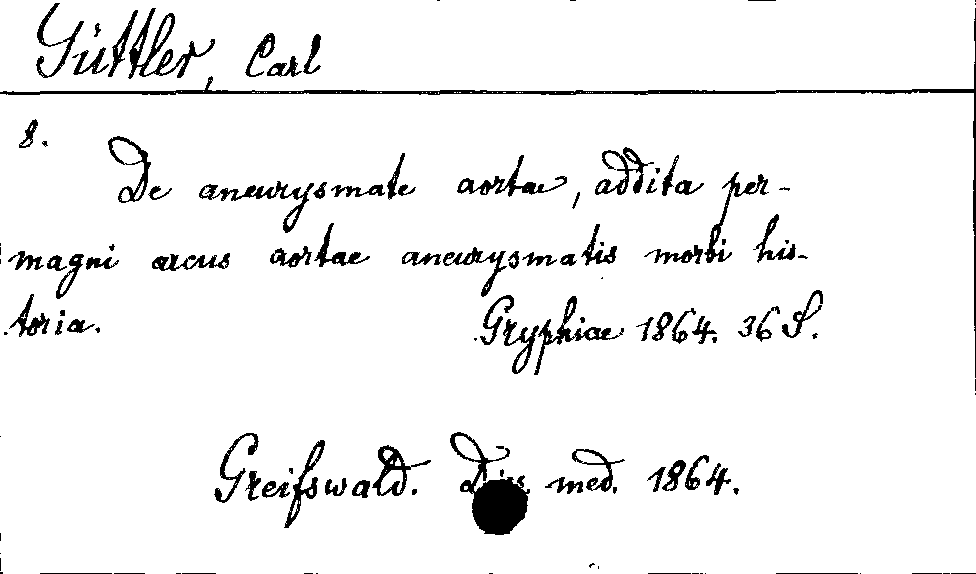 Güttler, Carl
8.
De aneurysmate aortae, addita per-
magni arcus aortae aneurysmatis morbi his-
toria.
Gryphiae 1864. 36 S.
Greifswald. Diss. med. 1864.